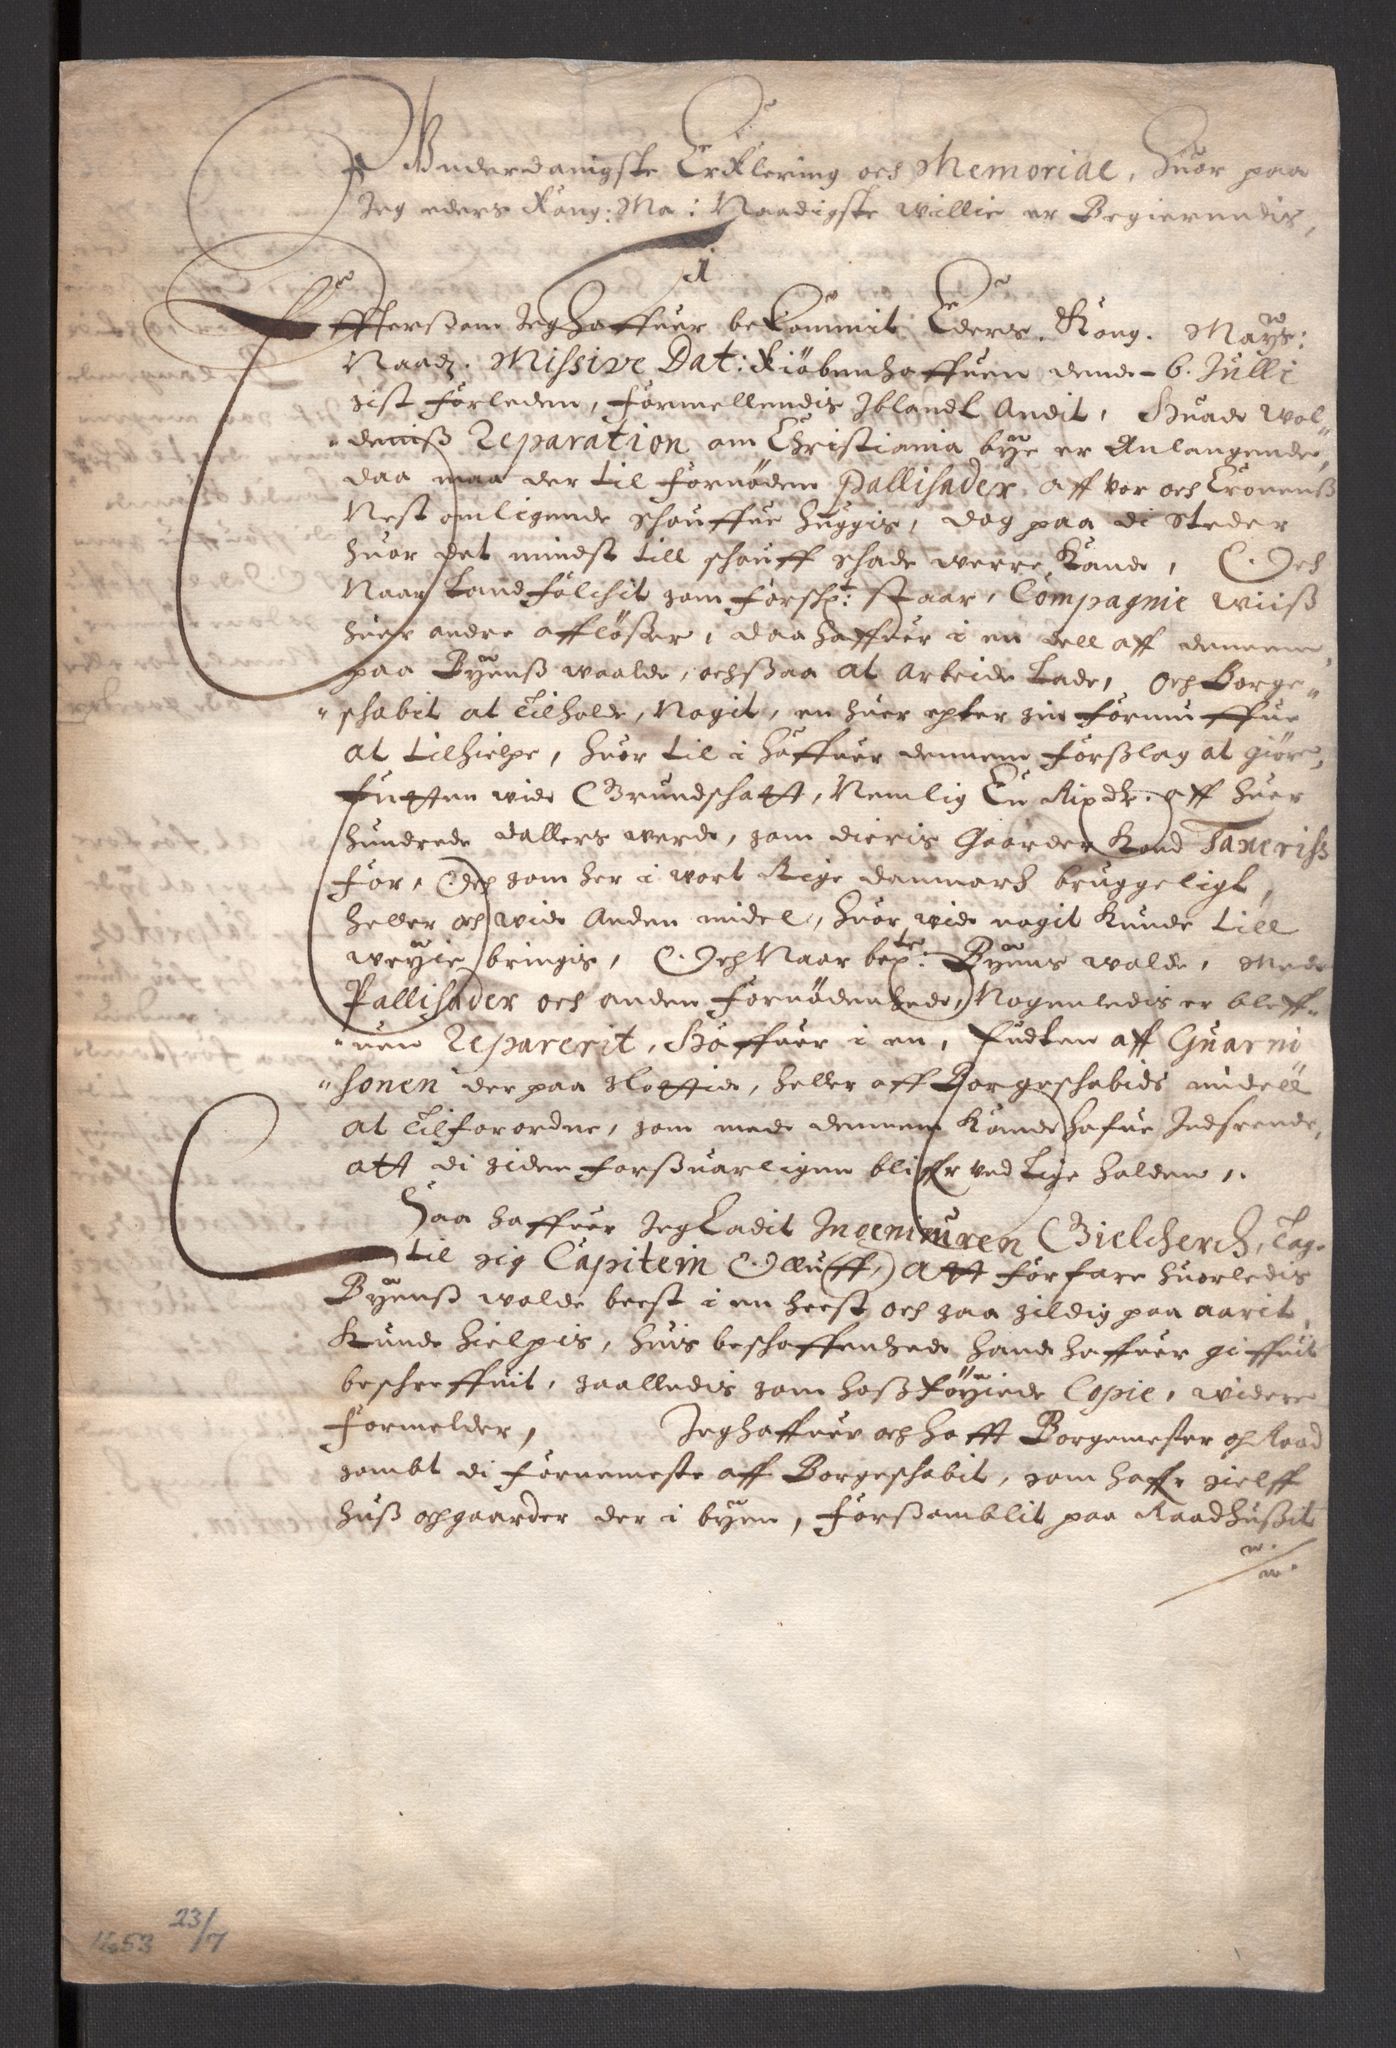 Underdanigste Erklering och Memorial, Huor paa
Jeg eders Kong: Ma: Naadigste willie er Begierendis,
1
Effterßom Jeg haffuer bekommit Eders. Kong. Mayts:
Naadz. Missive Dat: Kiöbenhaffuen dend 6. Julli
sist forleden, formellendis Iblandt Andit, Huad wol„
„dernis Reparation om Christiania bye er Anlangende,
daa maa der til fornöden Pallisader, aff vor och Cronens
Nest omligende schouffue huggis, dog paa di steder
huor det mindst till schouff schade werre kande, Och
Naar Landfolchit som forschr: staar, Compagnie wiiß
huer andre afflößer, daa haffuer i en dell aff dennem,
paa Byenß waalde, ochßaa at arbeide lade, Och Borge„
„schabit at tilholde, Nogit, en huer epter sin formuffue
At tilhielpe, huor til i haffuer dennem forßlag at giöre,
Entten wide Grundschatt, Nemlig En Rixdr. aff huer
hundrede dallers werde, som dieris Gaarder kand Taxeriss
for, Och som her i wort Rige danmarch bruggeligt,
heller och wide Anden midel, huor wide nogit kunde till
weyie bringis, Och Naar bete: Byens wolde, Med
Pallisader och anden fornödenhede, Nogenledis er bleff„
„uen Reparerit, Haffuer i en, Endten aff Guarni
„sonen der paa slottide, heller aff Borgeschabids midell
At tilforordne, som mede dennem kunde hafue Indseende,
att di siden forßuarligen bliffr ved Lige holden,
Saa haffuer Jeg Ladit Ingenieuren Gielcherch, tag
til sig Capitein Olluff, Att forfare huorledis
Byenß wolde beest i en heest och saa sildig paa aarit,
kunde hielpis, huis beschaffenhede hand haffuer giffuit
beschreffuit, saalledis som hoßföyiede Copie, widere
formelder, Jeg haffuer och hafft Borgemester och Raad
sambt di fornemeste aff Borgeschabit, som haffr sielff
huß och gaarder der i byen, forßamblit paa Raadhußit
23/7
1653